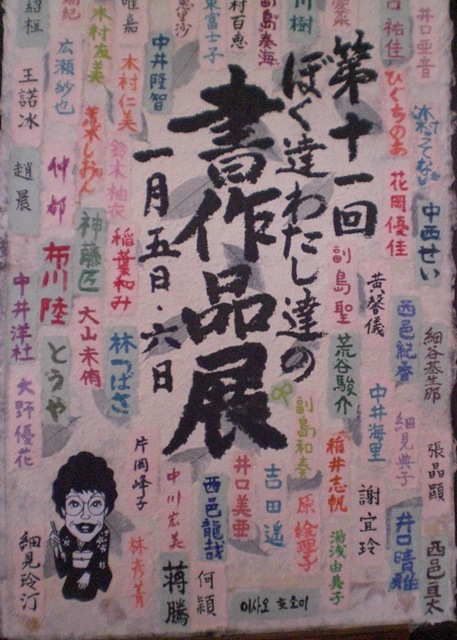 第十一回
ぼく達わたし達の
書作品展
一月五日・六日
井口亜音
口祐佳
ひぐちのあ
花岡優佳
中西せい
副島聖
黄馨儀
西邑紀香
細谷基生那
荒谷駿介
中井海里
細見典子
張晶顕
副島和奏
稲井志帆
謝宜玲
井口晴雅
西邑亘太
湯浅由典子
原絵理子
吉田遥
井口美亜
西邑龍哉
何穎
中川宏美
蒋騰
片岡峰子
林彦菁
이사오 호소이
副島奏海
村百恵
東富士子
恵里沙
中井隆智
唯嘉
木村仁美
鈴木柚衣
稲葉和み
林つばさ
木村友美
荒木しおん
神藤匠
大山未侑
広瀬紗也
仲都
布川陸
とうや
王諾冰
趙晨
中井洋杜
大野優花
細見玲汀